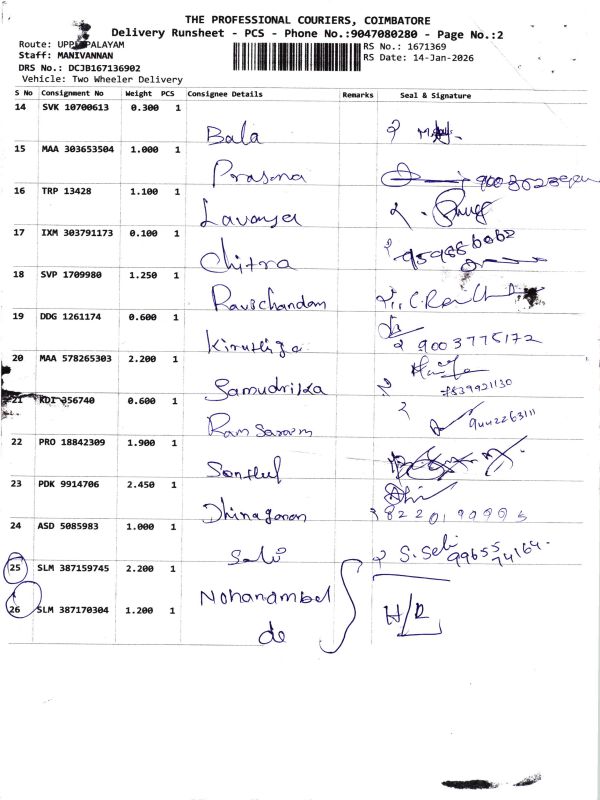 THE PROFESSIONAL COURIERS, COIMBATORE
Delivery Runsheet - PCS - Phone No.:9047080280 - Page No.:2
Route: UPPILIPALAYAM
RS No.: 1671369
Staff: MANIVANNAN
RS Date: 14-Jan-2026
DRS No.: DCJB167136902
Vehicle: Two Wheeler Delivery
S No Consignment No Weight PCS Consignee Details Remarks Seal & Signature
14 SVK 10700613 0.300 1
Bala
15 MAA 303653504 1.000 1
Prasona
16 TRP 13428 1.100 1
Lavanya
17 IXM 303791173 0.100 1
Chitra 9598886062
18 SVP 1709980 1.250 1
Ravichandam
19 DDG 1261174 0.600 1
Kiruthiga 9003775172
20 MAA 578265303 2.200 1
Samudrika 7539921130
21 KDI 356740 0.600 1
Ram Saravm 9442263111
22 PRO 18842309 1.900 1
Senthil
23 PDK 9914706 2.450 1
Dhinagaran
24 ASD 5085983 1.000 1
Selvi S. Selvi 99655 74164
25 SLM 387159745 2.200 1
Nohanambal
26 SLM 387170304 1.200 1 H/R
de